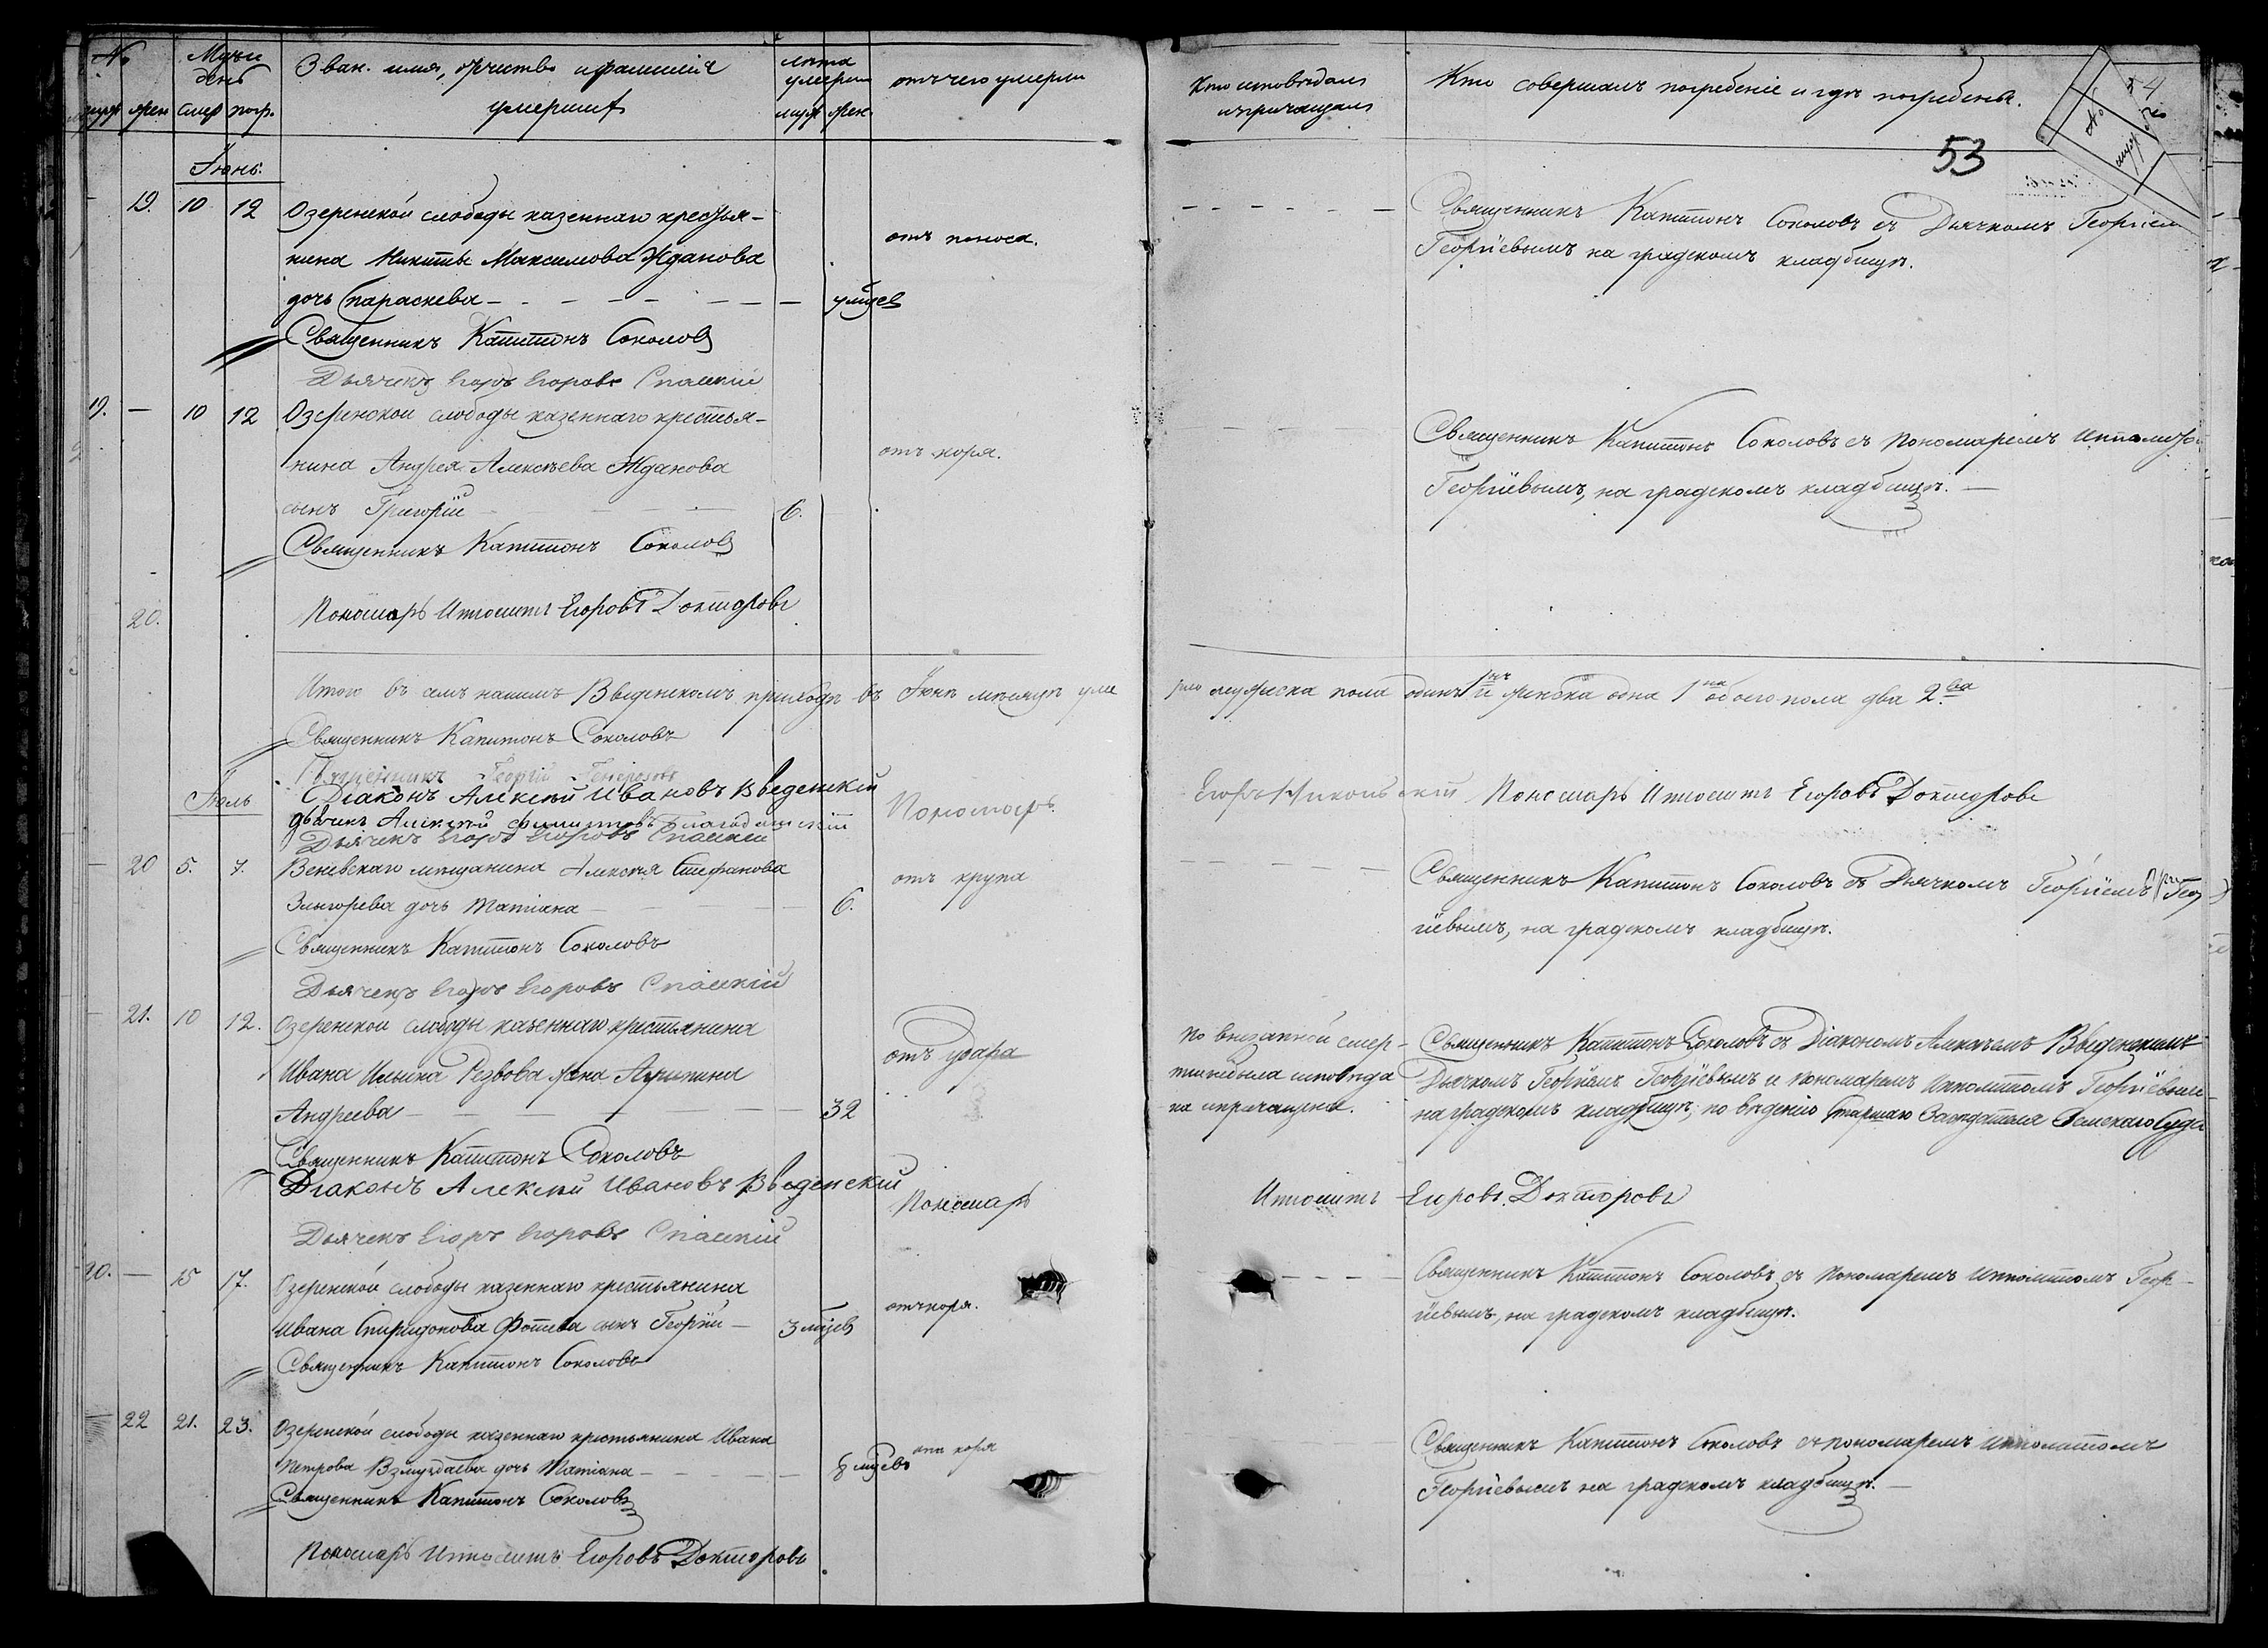 №
Мцъ и
день
Зван. имя, отчество и фамилія
умершихъ
лѣта
умерш
отъ чего умерли
муж жен смер погр.
муж жен.
Кто исповѣдалъ
и причащалъ
Кто совершалъ погребеніе и гдѣ погребены.
54
№
53
Іюнь.
19. 10 12 Озеренской слободы казеннаго крестья-
нина Никиты Максимова Жданова
дочь Параскева
отъ поноса.
Священникъ Капитонъ Соколовъ съ Дьячкомъ Георгіем
Георгіевымъ на градскомъ кладбищѣ.
Священникъ Капитонъ Соколовъ
Дьячекъ Егоръ Егоровъ Спасскій
19. — 10 12 Озеренской слободы казеннаго крестья-
нина Андрея Алексѣева Жданова
сынъ Григорій 6.
отъ коря.
Священникъ Капитонъ Соколовъ съ пономаремъ Ипполито
Георгіевымъ, на градскомъ кладбищѣ. —
Священникъ Капитонъ Соколовъ
20.
Пономарь Иполитъ Егоровъ Докторовъ
Итого въ семъ нашемъ Введенскомъ приходѣ въ Іюнѣ мѣсяцѣ уме
рло мужеска пола одинъ 1нъ и женска одна 1на обоего пола два 2ва
Священникъ Капитонъ Соколовъ
Священникъ Георгій
Діаконъ Алексѣй Ивановъ Введенскій
Дьячекъ Алексѣй Филиповъ
Дьячекъ Егоръ Егоровъ Спасскій
Пономарь Егоръ Никольскій Пономарь Иполитъ Егоровъ Докторовъ
Іюль
— 20 5. 7. Веневскаго мѣщанина Алексѣя Стефанова
дочь Татіана 6.
отъ крупа
Священникъ Капитонъ Соколовъ съ Дьячкомъ Георгіемъ Геор
гіевымъ, на градскомъ кладбищѣ.
Священникъ Капитонъ Соколовъ
Дьячекъ Егоръ Егоровъ Спасскій
— 21. 10 12. Озеренской слободы казеннаго крестьянина
Ивана Ильина Резвова жена Агрипина
Андреева 32
отъ удара
по внезапной смер-
ти не была исповѣда
на и причащена.
Священникъ Капитонъ Соколовъ съ Діакономъ Алексѣемъ Введенскимъ
Дьячкомъ Георгіемъ Георгіевымъ и пономаремъ Ипполитомъ Георгіевым
на градскомъ кладбищѣ, по вѣденію Старшаго Засѣдателя Земскаго Суда
Священникъ Капитонъ Соколовъ
Діаконъ Алексѣй Ивановъ Введенскій
Пономарь Иполитъ Егоровъ Докторовъ
Дьячекъ Егоръ Егоровъ Спасскій
20. — 15 17. Озеренской слободы казеннаго крестьянина
Ивана Спиридонова Фотіева сынъ Георгій — 3 мцевъ
отъ коря.
Священникъ Капитонъ Соколовъ съ пономаремъ Ипполитомъ Геор-
гіевымъ, на градскомъ кладбищѣ.
Священникъ Капитонъ Соколовъ
— 22 21. 23. Озеренской слободы казеннаго крестьянина Ивана
Петрова дочь Татіана 8 мцевъ
отъ коря
Священникъ Капитонъ Соколовъ съ пономаремъ Ипполитомъ
Георгіевымъ на градскомъ кладбищѣ. —
Священникъ Капитонъ Соколовъ
Пономарь Иполитъ Егоровъ Докторовъ